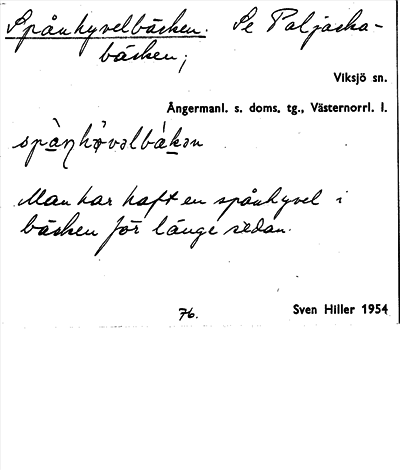 Spånhyvelbäcken. Se Paljacka-
bäcken;
Viksjö sn.
Ångermanl. s. doms. tg., Västernorrl. l.
Man har haft en spånhyvel i
bäcken för länge sedan.
76.
Sven Hiller 1954